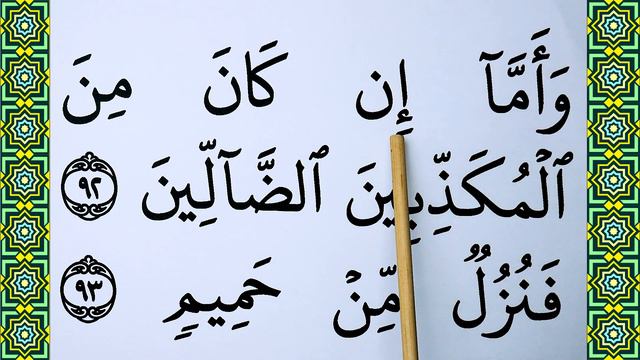 وَأَمَّآ إِن كَانَ مِنَ
ٱلْمُكَذِّبِينَ ٱلضَّآلِّينَ ٩٢
فَنُزُلٌ مِّنْ حَمِيمٍ ٩٣